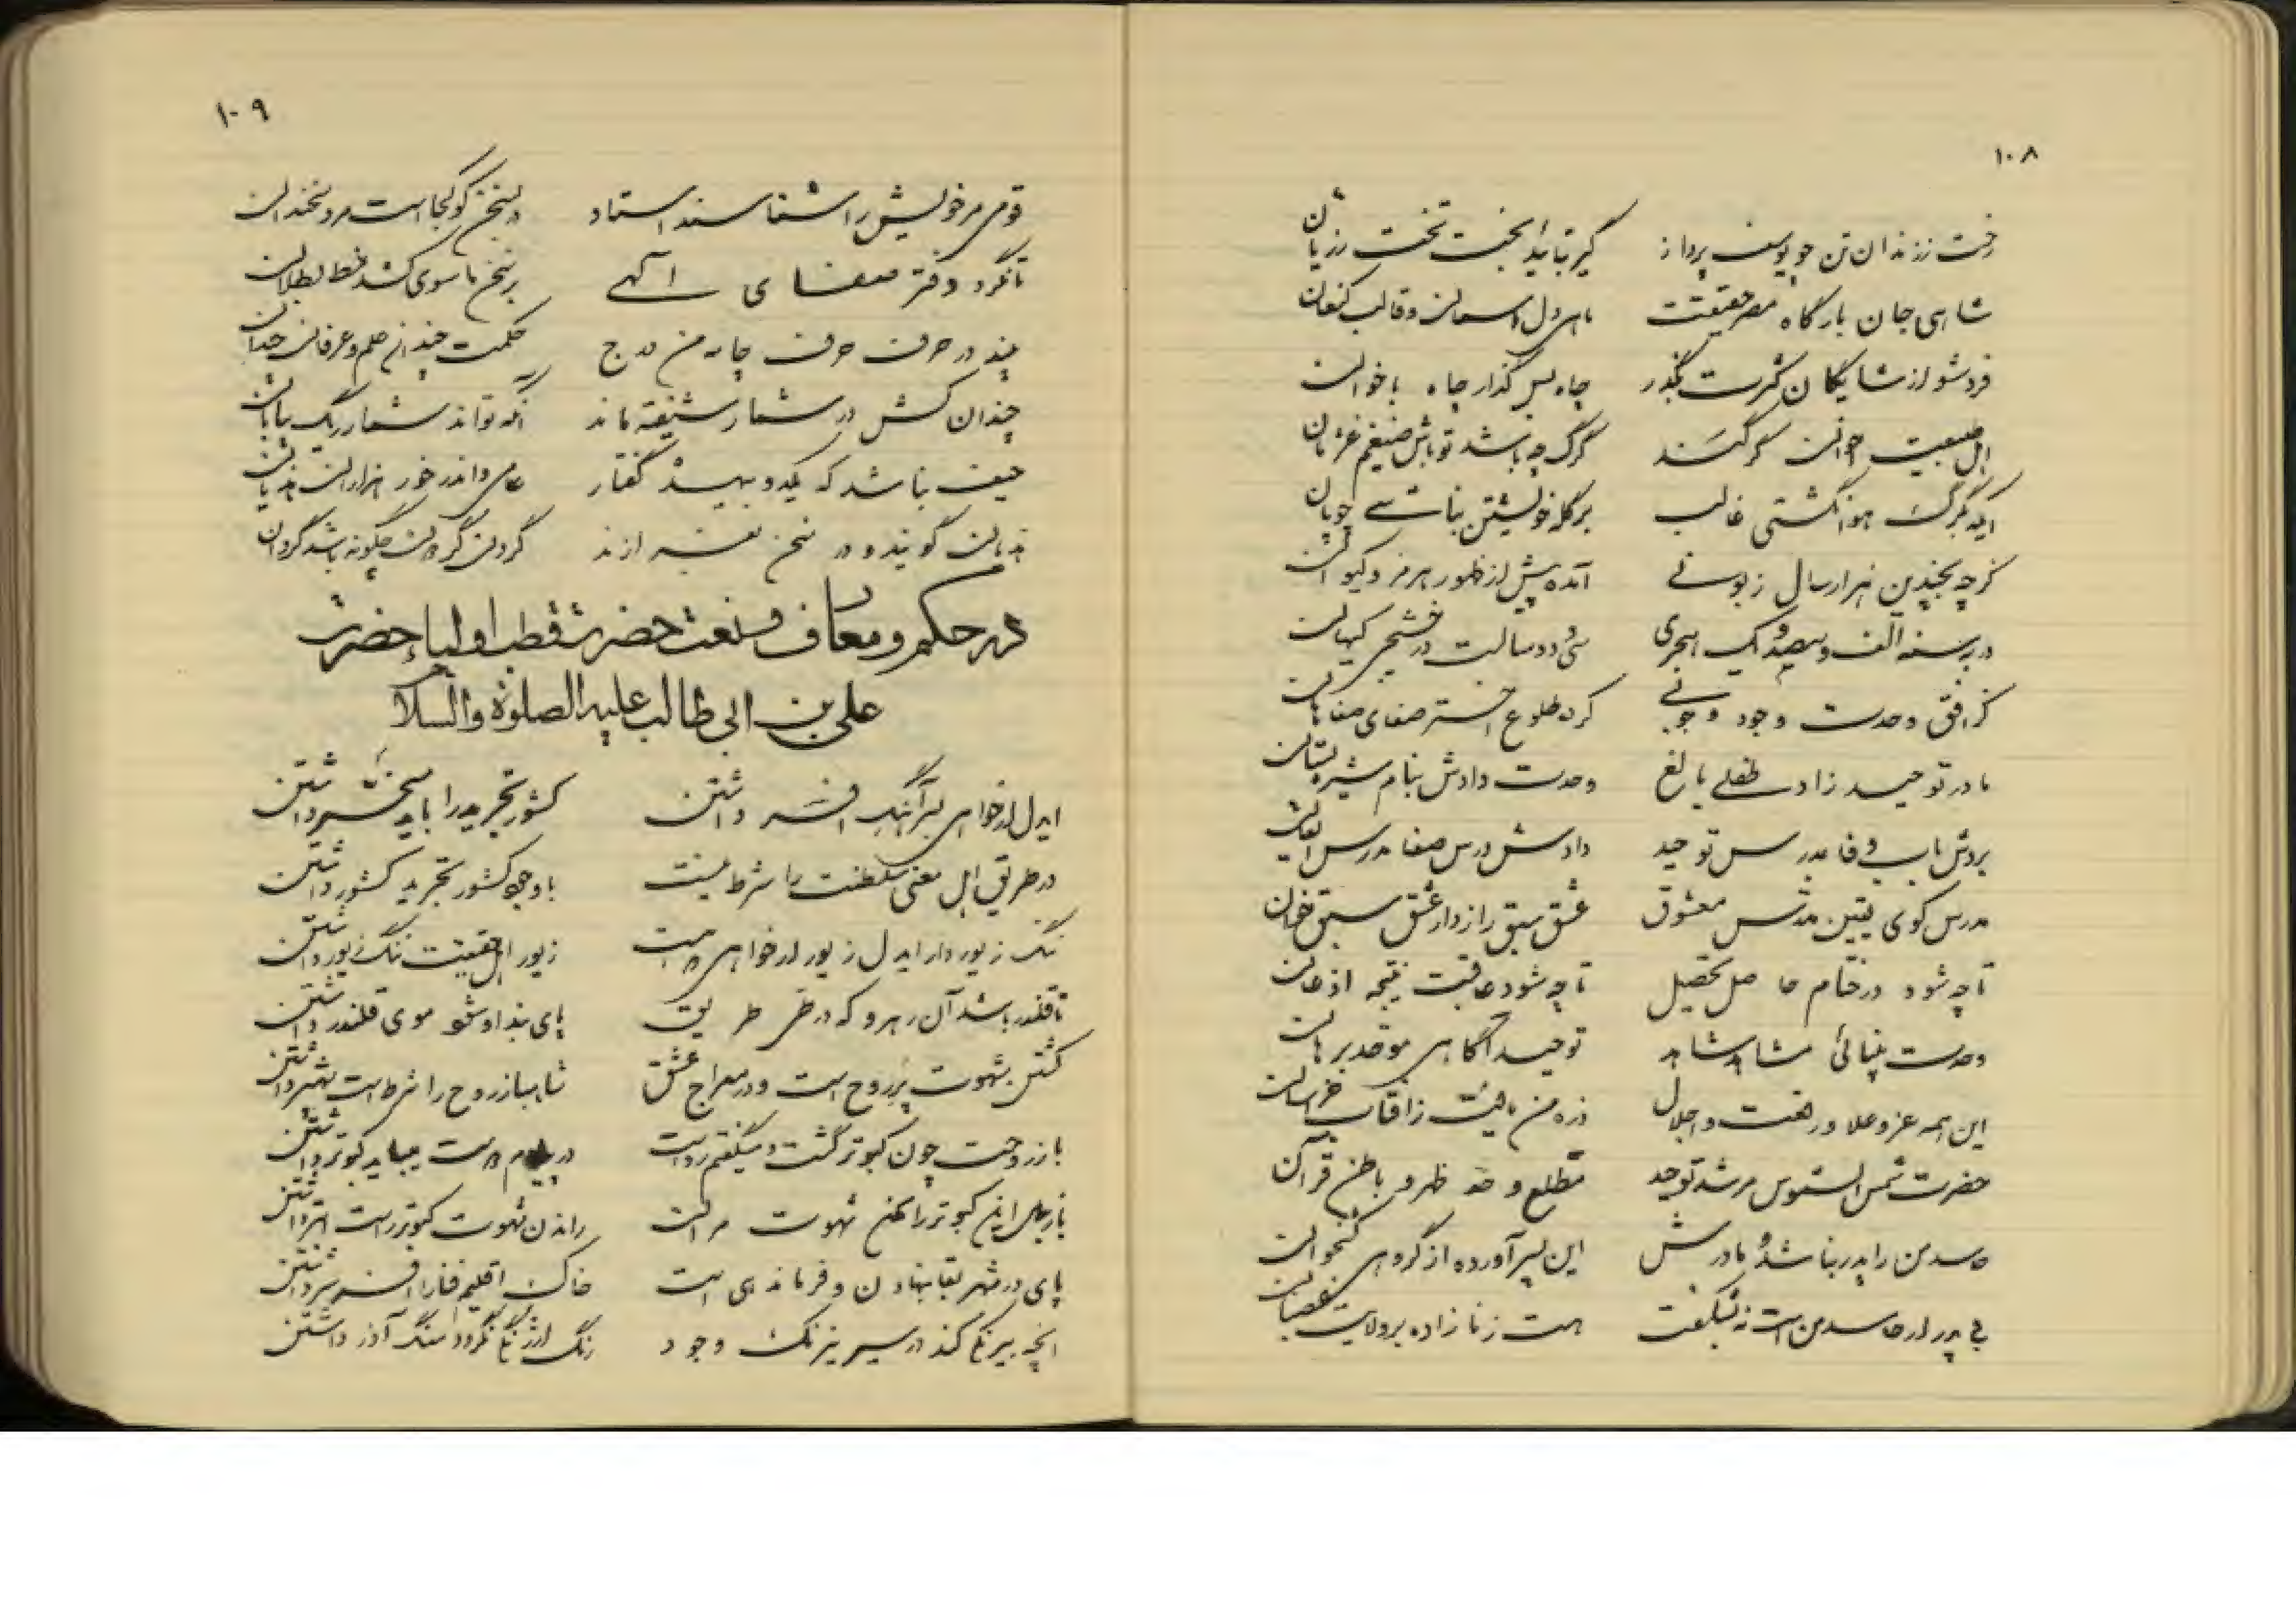 ۱۰۸
رخت ز زندان تن چو یوسف پرداز گیر بتأیید بخت تخت رز یان
شاهی جان بارگاه مصر حقیقت ماهی دل آسمان و قالب کنعان
فرد شو از شایگان کثرت بگذر چاه بس گذار جاه باخوان
اهل طبیعت جوان گرسند گرگ چه باشد تو باش ضیغم غژمان
ایکه بگرگ هوا نگشتی غالب بر گله خویشتن نباشی چوپان
گرچه بچندین هزار سال زبونی آمده پیش از ظهور هرمز و کیوان
در سنه الف و سیصد و یک هجری سی و دو سالست در کیهان
کز افق وحدت وجود وجوبی کرد طلوع اختر صفای صفاهان
مادر توحید زاد طفلی بالغ وحدت دادش بنام شیر ز پستان
بردش باب وفا بدرس توحید دادش درس صفا مدرس ایقان
مدرس کوی یقین مدرس معشوق عشق سبق راز دار عشق سبق خوان
تا چه شود در ختام حاصل تحصیل تا چه شود عاقبت نتیجه اذعان
وحدت پنهانی مشاهد شاهد توحید آگاهی موحد برهان
این همه عز و علا و رفعت و اجلال ذره من یافت ز آفتاب خراسان
حضرت شمس الشموس مرشد توحید مطلع و حد ظهر و باطن قرآن
حاسد من را پدر نباشد و مادرش این پسر آورده از گروهی
بی پدر ار حاسد من است نه شگفت هست زنا زاده بر ولایت عصیان
۱۰۹
قومی مر خویش را شناسند استاد در سخن گو کجاست مرد سخندان
تا نگرد دفتر صفای آگهی بر سخن ماسوی کشد خط بطلان
چند در حرف حرف چامه من درج حکمت چندانی علم و عرفان چندان
چندان کش در شمار شیفته ماند آنکه تواند شمار ریگ بیابان
حیف نباشد که یکدو بیهده گفتار عامی و اندر خور هزاران هذیان
هذیان گویند و در سخن نغز ازند گردن گردان چگونه باشد گردان
در حکم و معارف و نعت حضرت قطب اولیاء حضرت
علی بن ابی طالب علیه الصلوة والسلام
ایدل ار خواهی بسر آهنگ افسر داشتن کشور تجرید را باید مسخر داشتن
در طریق اهل معنی سلطنت را شرط نیست با وجود کشور تجرید کشور داشتن
ننگ زیور دار ایدل زیور ار خواهی درست زیور اهل حقیقت ننگ زیور داشتن
تا قلندر باشد آن رهرو که در طی طریق پای بند او شو موی قلندر داشتن
کشتن شهوت پر روح است و در معراج عشق شاهباز روح را شرط است شهپر داشتن
باز روحت چون کبوتر گشت و میگفتم رواست در بام هست میباید کبوتر داشتن
باز جای این کبوتر را بکن شهوت مران راندن شهوت کبوتر راست ابتر داشتن
پای در شهر بقا بنهادن و فرماندهی است خاک اقلیم فنا را افسر سر داشتن
آنچه بیرنگ کند در سیر نیرنگ وجود رنگ ارژنگ نگردد سنگ آذر داشتن